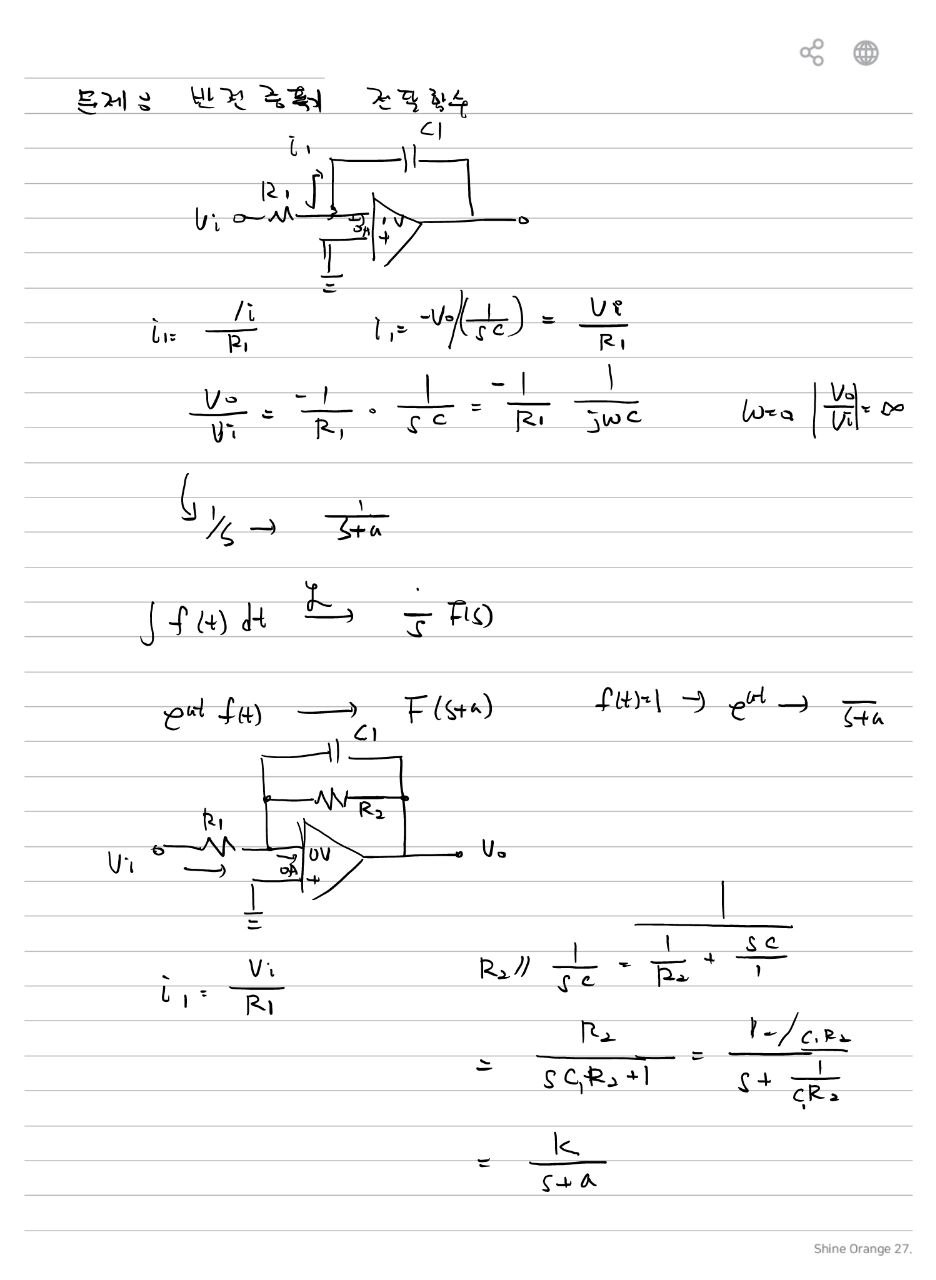 문제는 반전 증폭기 전달함수
C1
i₁
R₁
Vi
0A
0V
+
i₁= Vi/R₁    i₁= -Vo/(1/sC) = Vi/R₁
Vo/Vi = -1/R₁ · 1/sC = -1/R₁ 1/jωC    ω=0 |Vo/Vi|=∞
1/s → 1/s+a
∫ f(t) dt ℒ→ 1/s F(s)
e^{at} f(t) → F(s+a)    f(t)=1 → e^{at} → /s+a
C1
R₂
R₁
Vi
0A
0V
+
Vo
i₁ = Vi/R₁
R₂ // 1/sC = 1/(1/R₂ + sC/1)
= R₂/(sC₁R₂+1) = /C₁R₂/(s + 1/C₁R₂)
= k/(s+a)
Shine Orange 27.